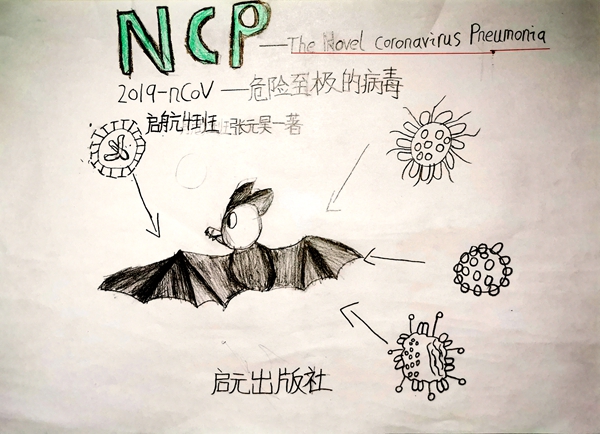 NCP—The Novel Coronavirus Pneumonia
2019-nCoV —危险至极的病毒
启航4班 张元昊一著
启元出版社